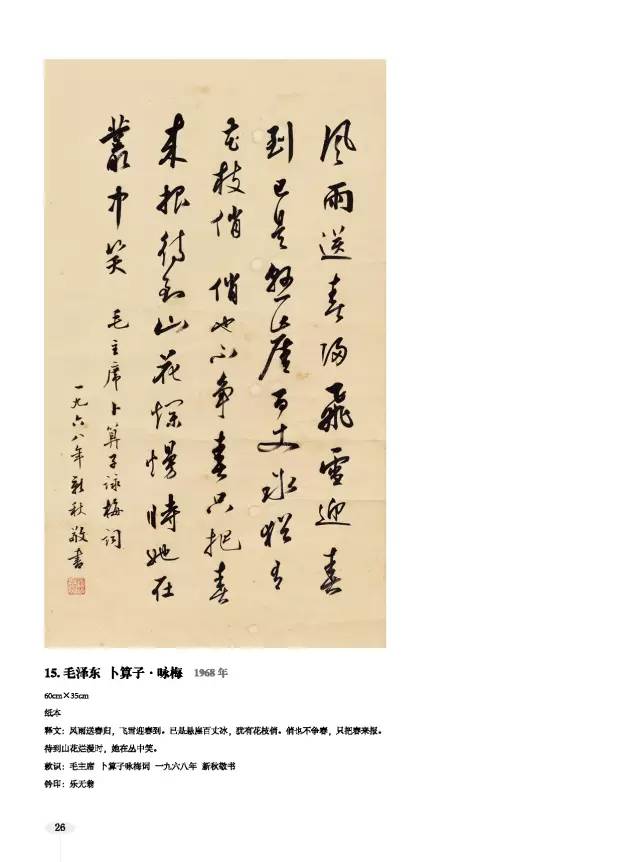 風雨送春归飛雪迎春
到已是懸崖百丈冰猶有
花枝俏 俏也不争春只把春
来报待到山花爛漫時她在
叢中笑 毛主席卜算子詠梅词
一九六八年新秋敬書
15. 毛泽东 卜算子·咏梅 1968 年
60cm×35cm
纸本
释文：风雨送春归，飞雪迎春到。已是悬崖百丈冰，犹有花枝俏。俏也不争春，只把春来报。
待到山花烂漫时，她在丛中笑。
款识：毛主席 卜算子咏梅词 一九六八年 新秋敬书
钤印：乐无着
26